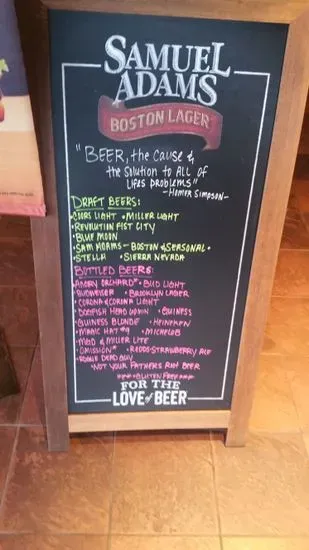 SAMUEL
ADAMS
BOSTON LAGER
"BEER, the CAUSE &
the SOLUTION to ALL of
LIFES PROBLEMS"
-HOMER SIMPSON-
DRAFT BEERS:
•COORS LIGHT •MILLER LIGHT
•REVOLUTION FIST CITY
•BLUE MOON
•SAM ADAMS-BOSTON & SEASONAL•
•STELLA •SIERRA NEVADA
BOTTLED BEERS:
•ANGRY ORCHARD* •BUD LIGHT
•BUDWEISER •BROOKLYN LAGER
•CORONA & CORONA LIGHT
•DOGFISH HEAD •GUINESS
•GUINESS BLONDE •HEINEKEN
•MAGIC HAT #9 •MICHELOB
•MGD & MILLER LITE
•OMISSION* •REDDS-STRAWBERRY ALE
•ROGUE DEAD GUY
•NOT YOUR FATHERS ROOT BEER
GLUTEN FREE
FOR THE
LOVE of BEER